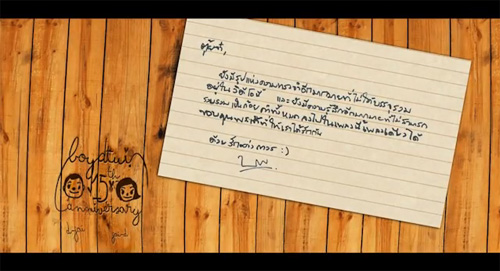 ตุ้ยจ๋า,
ยังมีรูปแห่งความทรงจำอีกมากมายที่ไม่ได้บรรจุรวม
อยู่ในวีดีโอนี้ และยังมีความรู้สึกอีกมากมายที่ไม่สามารถ
รวบรวมเป็นถ้อยคำทั้งหมดลงไปในเพลงนี้เพลงเดียวได้
ขอบคุณพระเจ้าที่ให้เราได้พบกัน
ด้วยรักถาวร :)
boy&tui
15th
anniversary